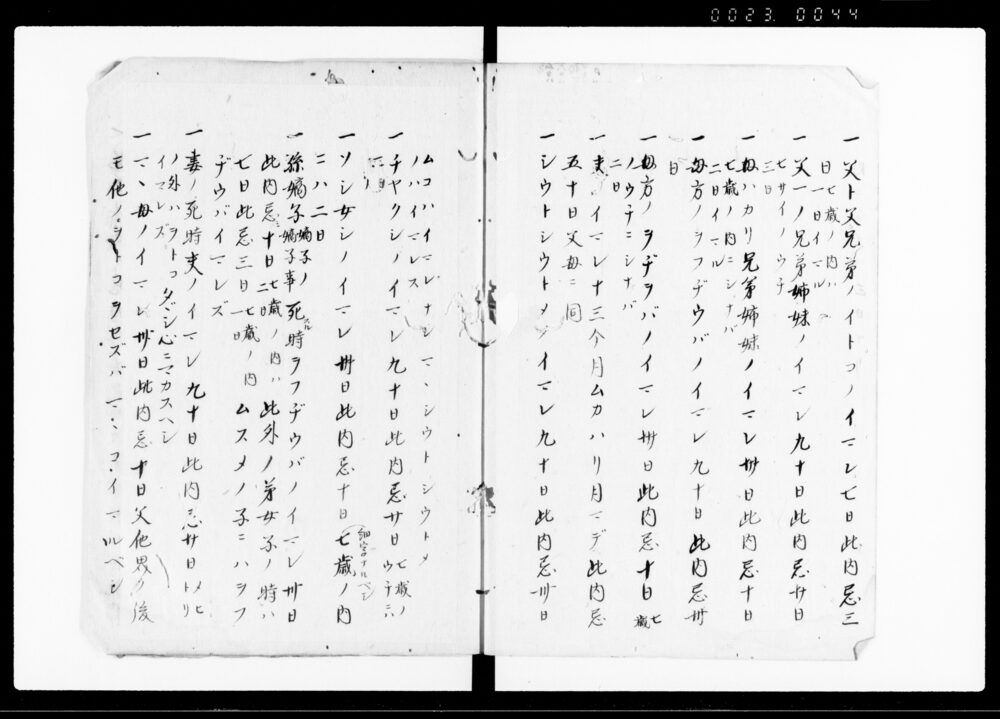 0023. 0044
一父ト父兄弟ノイトコノイマレ七日此内忌三
日七歳ノ内ハ一日イマル
一父一ノ兄弟姉妹ノイマレ九十日此内忌廿日
七サイノウチ三日
一母ハカリ兄弟姉妹ノイマレ卅日此内忌十日
七歳ノ内ニシナバ二日イマル
一母方ノヲフヂウバノイマレ九十日此内忌卅
日
一母方ノヲヂヲバノイマレ卅日此内忌十日七歳
ノウチニシナバ二日
一夫ノイマレ十三个月ムカハリ月マデ此内忌
五十日父母ニ同
一シウトシウトメノイマレ九十日此内忌卅日
ムコハイマレナシマヽシウトシウトメ
ノハイマレス
一チヤクシノイマレ九十日此内忌廿日七歳ノウチニハ
一ソシ女シノイマレ卅日此内忌十日七歳ノ内
細字ナルベシ
ニハ二日
一孫嫡子嫡子ノ嫡子事死ル時ヲフヂウバノイマレ卅日
此内忌十日七歳ノ内ハ二日此外ノ弟女子ノ時ハ
七日此忌三日七歳ノ内一日ムスメノ子ニハヲフ
ヂウバイマレズ
一妻ノ死時夫ノイマレ九十日此内忌廿日メヒトリ
ノ外ハヲトコイマレズタヾシ心ニマカスヘシ
一マヽ母ノイマレ卅日此内忌十日父他界ノ後
モ他ノヲトコヲセズバマヽコイマルベシ